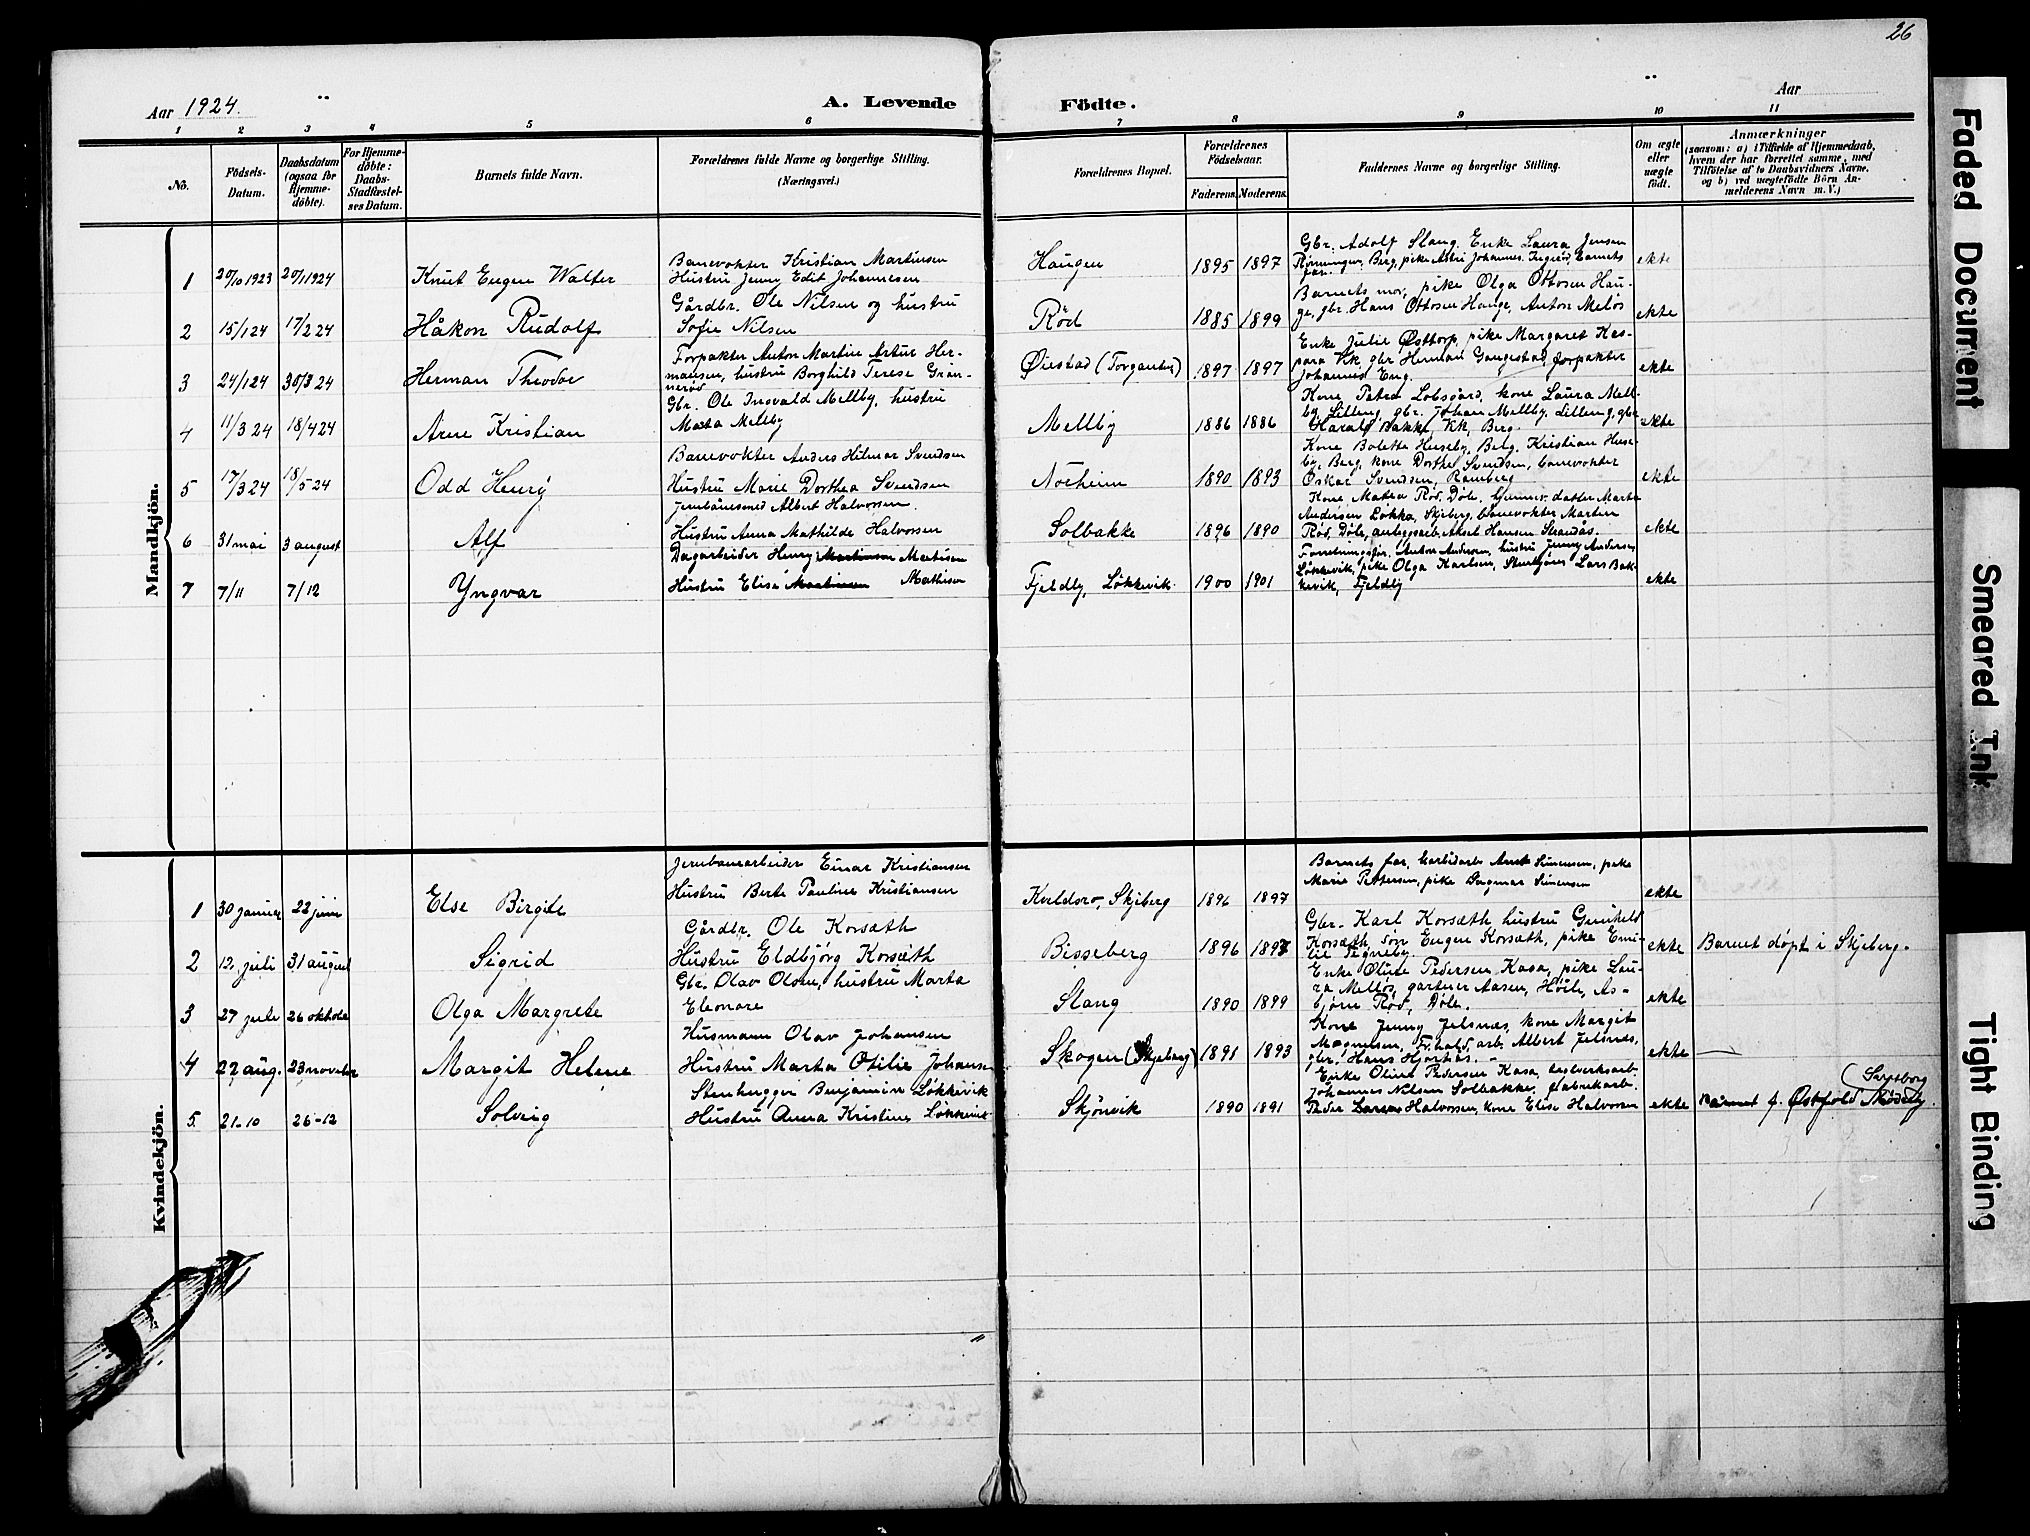 26
Aar 1924.
A. Levende Födte.
Aar
1 2 3 4 5 6 7 8 9 10 11
No.
Födsels-Datum.
Daabsdatum (ogsaa for Hjemme-döbte).
For Hjemme-döbte: Daabs-Stadfæstel-ses Datum.
Barnets fulde Navn.
Forældrenes fulde Navne og borgerlige Stilling.
(Næringsvei.)
Forældrenes Bopæl.
Forældrenes Födselsaar.
Faderens. Moderens.
Faddernes Navne og borgerlige Stilling.
Om ægte eller uægte födt.
Anmærkninger
(saasom: a) i Tilfælde af Hjemmedaab, hvem der har forrettet samme, med Tilföielse af to Daabsvidners Navne, og b) ved uægtefödte Börn An-melderens Navn m. V.)
Mandkjön.
1 20/10 1923 20/1 1924 Knut Eugen Walter
Banevokter Kristian Martinsen
Hustru Jenny Edit Johannesen
Haugen 1895 1897
Gbr. Adolf Slang. Enke Laura Jensen
Rønningen, Berg, pike Astri Johannes. Ingerød, barnets
far.
ekte
2 15/1 24 17/2 24 Håkon Rudolf
Gårdbr. Ole Nilsen og hustru
Sofie Nilsen
Rød 1885 1899
Barnets mor, pike Olga Ottosen Hau-
ge, gbr. Hans Ottosen Hauge, Anton Melløs
ekte
3 24/1 24 30/3 24 Herman Theodor
Forpakter Anton Martin Artur Her-
mansen, hustru Borghild Terese Gran-
nerød
Øiestad (Torgauten) 1897 1897
Enke Julie Østtorp, pike Margaret Kas-
para Vik gbr Herman Gaugestad forpakter
Johannes Eng.
ekte
4 11/3 24 18/4 24 Arne Kristian
Gbr. Ole Ingvald Mellby, hustru
Marta Mellby
Mellby 1886 1886
Kone Petra Løbsgård, kone Laura Mell-
by, Lilleng, gbr. Johan Mellby, Lilleng, gbr
Harald Bakke, Vik, Berg.
ekte
5 17/3 24 18/5 24 Odd Henry
Banevokter Anders Hilmar Svendsen
Hustru Marie Dorthea Svendsen
Norheim 1890 1893
Kone Bolette Huseby, Berg, Kristian Huse-
by, Berg, kone Dorthe Svendsen, banevokter
Oskar Svendsen, Ramberg
ekte
6 31 mai 3 august Alf
Jernbanesmed Albert Halvorsen.
Hustru Anna Mathilde Halvorsen
Solbakke 1896 1890
Kone Matea Rød, Døle, hjemmev. datter Marte
Andersen Løkka, Skjeberg, banevokter Martin
Rød, Døle, anleggsarb. Aksel Hansen Strandås.
ekte
7 7/11 7/12 Yngvar
Dagarbeider Henry Martinsen Matisen
Hustru Elise Martinsen Mathisen
Fjeldly, Løkkevik 1900 1901
Forretningsfør. Anton Andersen, hustru Jenny Andersen
Løkkevik, pike Olga Karlsen, Stenhugger Lars Bak-
kevik, Fjeldly
ekte
Kvindekjön.
1 30 januar 22 juni Else Birgite
Jernbanearbeider Einar Kristiansen
Hustru Berte Pauline Kristiansen
Kveldsro, Skjeberg 1896 1897
Barnets far, karbidarb Arnt Simensen, pike
Marie Pettersen, pike Dagmar Simensen
ekte
2 12. juli 31 august Sigrid
Gårdbr. Ole Korsæth
Hustru Eldbjörg Korsæth
Bisseberg 1896 1897
Gbr. Karl Korsæth hustru Gunhild
Korsæth, søn Eugen Korsæth, pike Emi-
lie Tigneby.
ekte Barnet døpt i Skjeberg.
3 27 juli 26 oktober Olga Margrete
Gbr. Olav Olsen, hustru Marta
Eleonore
Slang 1890 1899
Enke Oline Pedersen Kasa, pike Lau-
ra Melløs, gartner Aasen, Höile, As-
björn Rød, Døle.
ekte
4 22 aug. 23 november Margit Helene
Husmann Olav Johansen
Hustru Marta Otilie Johansen
Skogen (Skjeberg) 1891 1893
Kone Jenny Jelsnæs, kone Margit
Magnelsen, Fr.hald, arb. Albert Jelsnes,
gbr. Hans Hjortås. –
ekte —
5. 21-10 26-12 Solveig
Stenhugger Benjamin Løkkevik
Hustru Anna Kristine Løkkevik
Skjönvik 1890 1891
Enke Oline Pedersen Kasa, teglverksarb.
Johannes Nilsen Solbakke, fabrikarb.
Peder Larsen Halvorsen, kone Elise Halvorsen
ekte Barnet f. Østfold Mødrehj.
Sarpsborg
Faded Document
Smeared Ink
Tight Binding